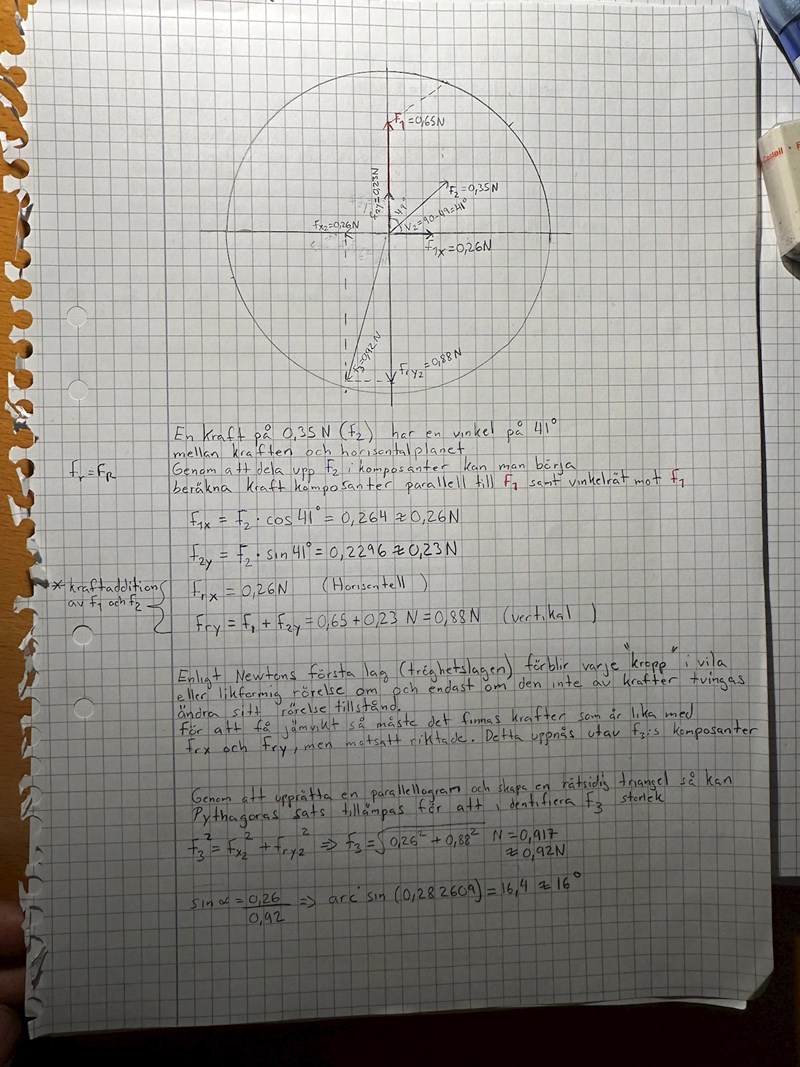 F₁=0,65N
F₂y=0,23N
49°
F₂=0,35N
V₂=90-49=41°
fx₂=0,26N
F₁x=0,26N
f₃=0,92N
Fry₂=0,88N
En kraft på 0,35 N (f₂) har en vinkel på 41°
mellan kraften och horisontalplanet
Genom att dela upp F₂ i komposanter kan man börja
beräkna kraft komposanter parallell till F₁ samt vinkelrät mot F₁
Fr=FR
F₁x = F₂ · cos 41° = 0,264 ≈ 0,26N
F₂y = F₂ · sin 41° = 0,2296 ≈ 0,23N
Frx = 0,26N (Horisentell)
* kraftaddition
av F₁ och f₂
Fry = F₁ + F₂y = 0,65 + 0,23 N = 0,88N (vertikal)
Enligt Newtons första lag (tröghetslagen) förblir varje "kropp" i vila
eller likformig rörelse om och endast om den inte av krafter tvingas
ändra sitt rörelse tillstånd.
För att få jämvikt så måste det finnas krafter som är lika med
Frx och Fry, men motsatt riktade. Detta uppnås utav F₃:s komposanter
Genom att upprätta en parallellogram och skapa en rätsidig triangel så kan
Pythagoras sats tillämpas för att identifiera F₃ storlek
f₃² = fx₂² + fry₂² => f₃ = √0,26² + 0,88² N = 0,917
≈ 0,92N
sin α = 0,26/0,92 => arc sin (0,282609) = 16,4 ≈ 16°